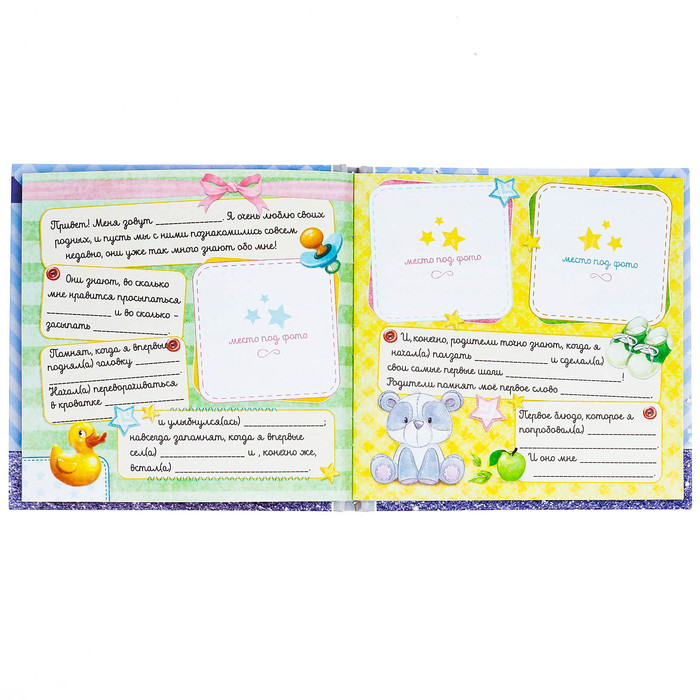 Привет! Меня зовут ____________. Я очень люблю своих
родных, и пусть мы с ними познакомились совсем
недавно, они уже так много знают обо мне!
Они знают, во сколько
мне нравится просыпаться
____________ и во сколько -
засыпать ____________.
место под фото
Помнят, когда я впервые
поднял(а) головку ____________.
Начал(а) переворачиваться
в кроватке ____________
и улыбнулся(ась) ____________;
навсегда запомнят, когда я впервые
сел(а) ____________ и , конечно же,
встал(а) ____________.
место под фото
место под фото
И, конечно, родители точно знают, когда я
начал(а) ползать ____________ и сделал(а)
свои самые первые шаги ____________!
Родители помнят моё первое слово ____________.
Первое блюдо, которое я
попробовал(а) ____________
____________.
И оно мне ____________
____________.